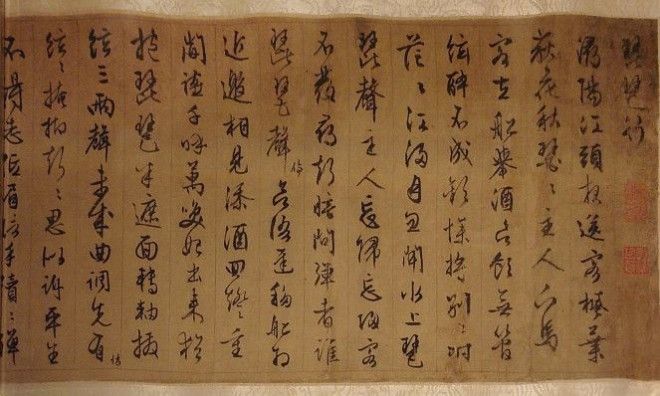 琵琶行
潯陽江頭夜送客楓葉
荻花秋瑟〻主人下馬
客在船舉酒欲飲無管
絃醉不成歡慘將別〻時
茫〻江浸月忽聞水上琵
琶聲主人忘歸客
不發尋聲暗問彈者誰
琵琶聲停欲語遲移船相
近邀相見添酒回燈重
開讌千呼萬喚始出來猶
抱琵琶半遮面轉軸撥
絃三兩聲未成曲調先有情
絃〻掩抑聲〻思似訴平生
不得志低眉信手續〻彈